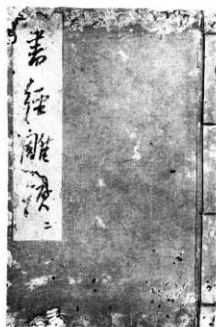 書經離二